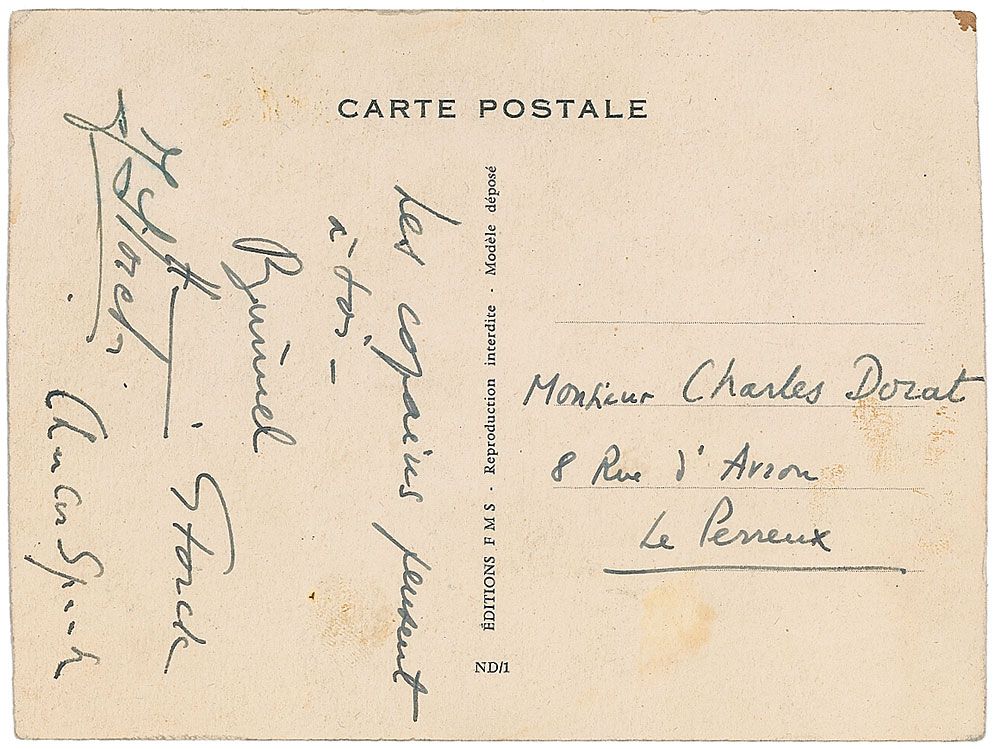 CARTE POSTALE
Les copains pensent
à toi –
Bunuel
Storck
Charles Spaak
ÉDITIONS F M S - Reproduction interdite - Modèle déposé
ND/1
Monsieur Charles Dorat
8 Rue d' Avron
Le Perreux